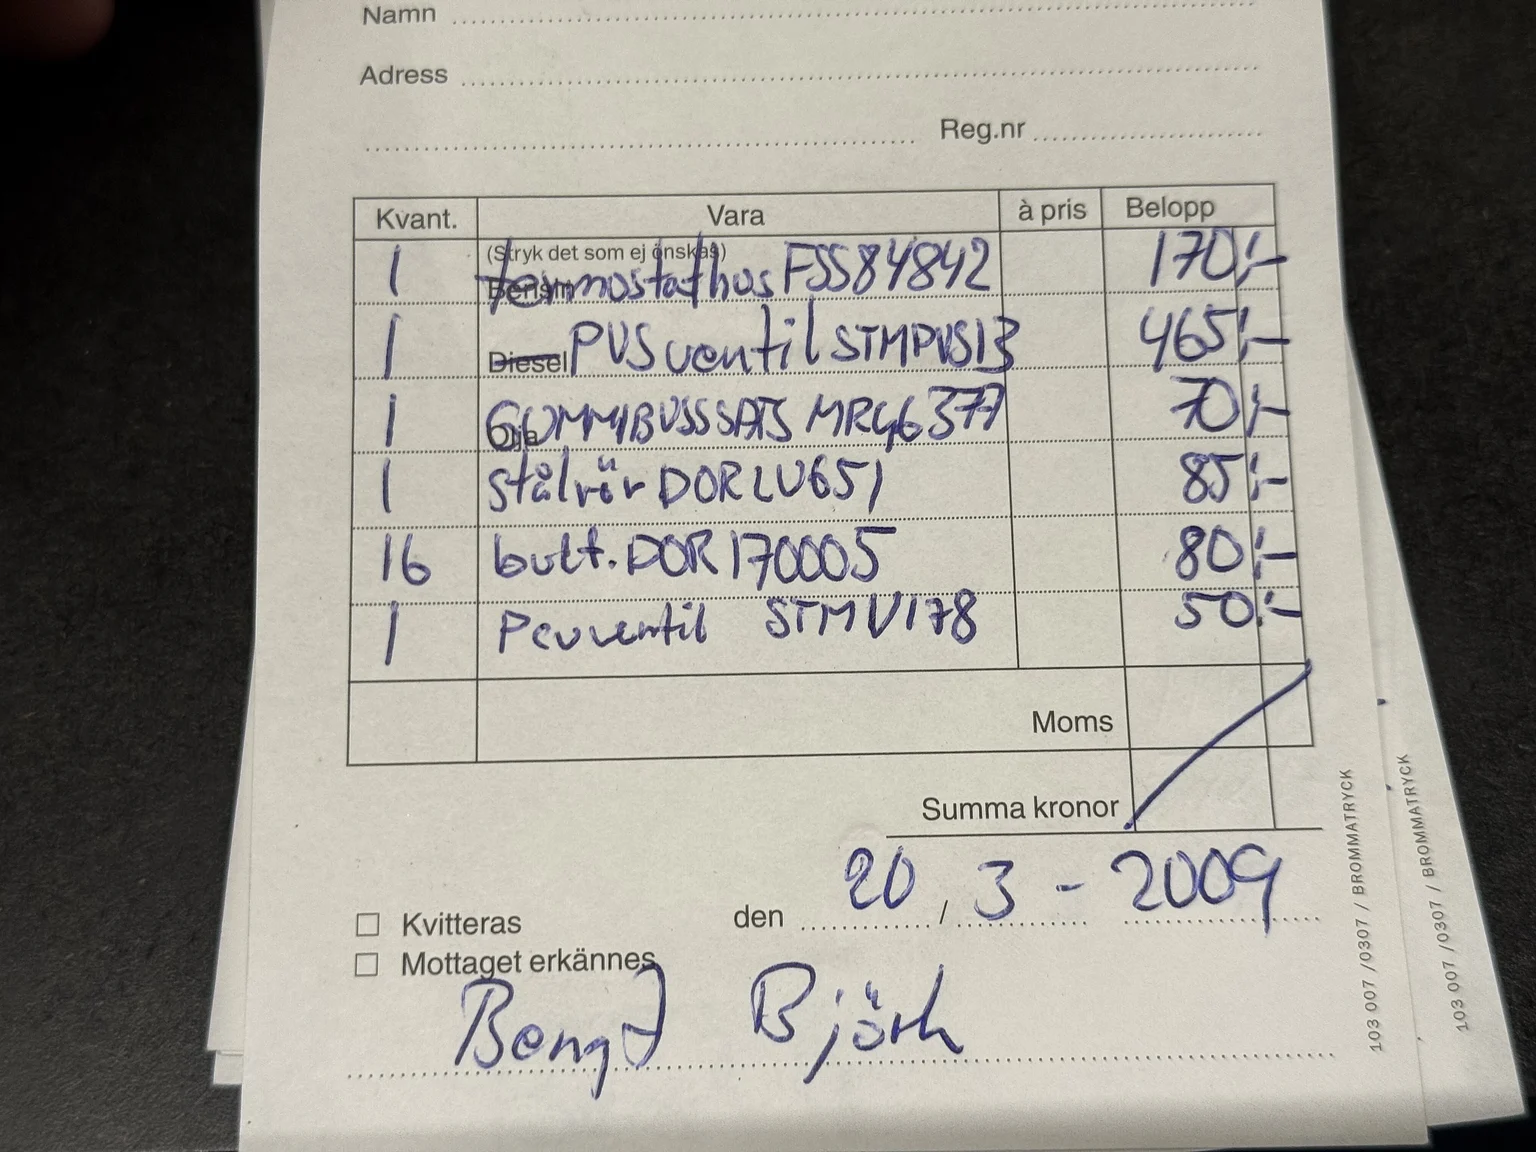 Namn
Adress
Reg.nr
Kvant. Vara à pris Belopp
(Stryk det som ej önskas)
1 Bensin termostathus FSS84842 170:-
1 Diesel PVS ventil STMPVS13 465:-
1 Olja GUMMIBUSSSATS MR46377 70:-
1 stålrör DORLU651 85:-
16 bult. DOR170005 80:-
1 Pcvventil STMV178 50:-
Moms
Summa kronor
Kvitteras den 20 / 3 - 2009
Mottaget erkännes
Bengt Björk
103 007 /0307 / BROMMATRYCK
103 007 /0307 / BROMMATRYCK